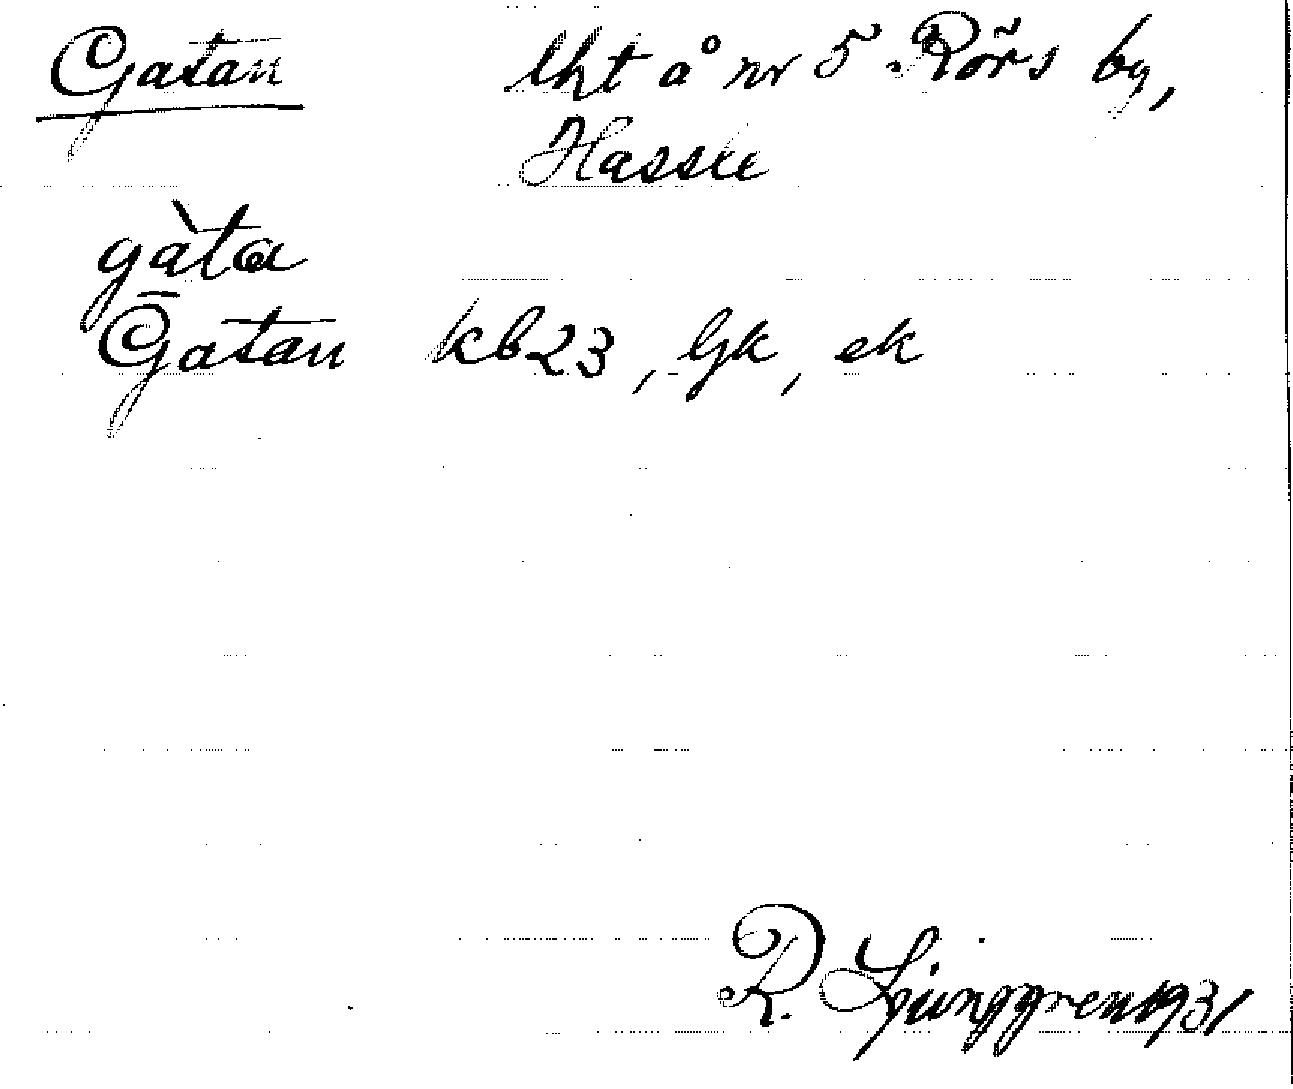 Gatan lht å nr 5 Rörs by,
Hassle
gàta
Gatan kb23, Gk, ek
R. Ljunggren 1931